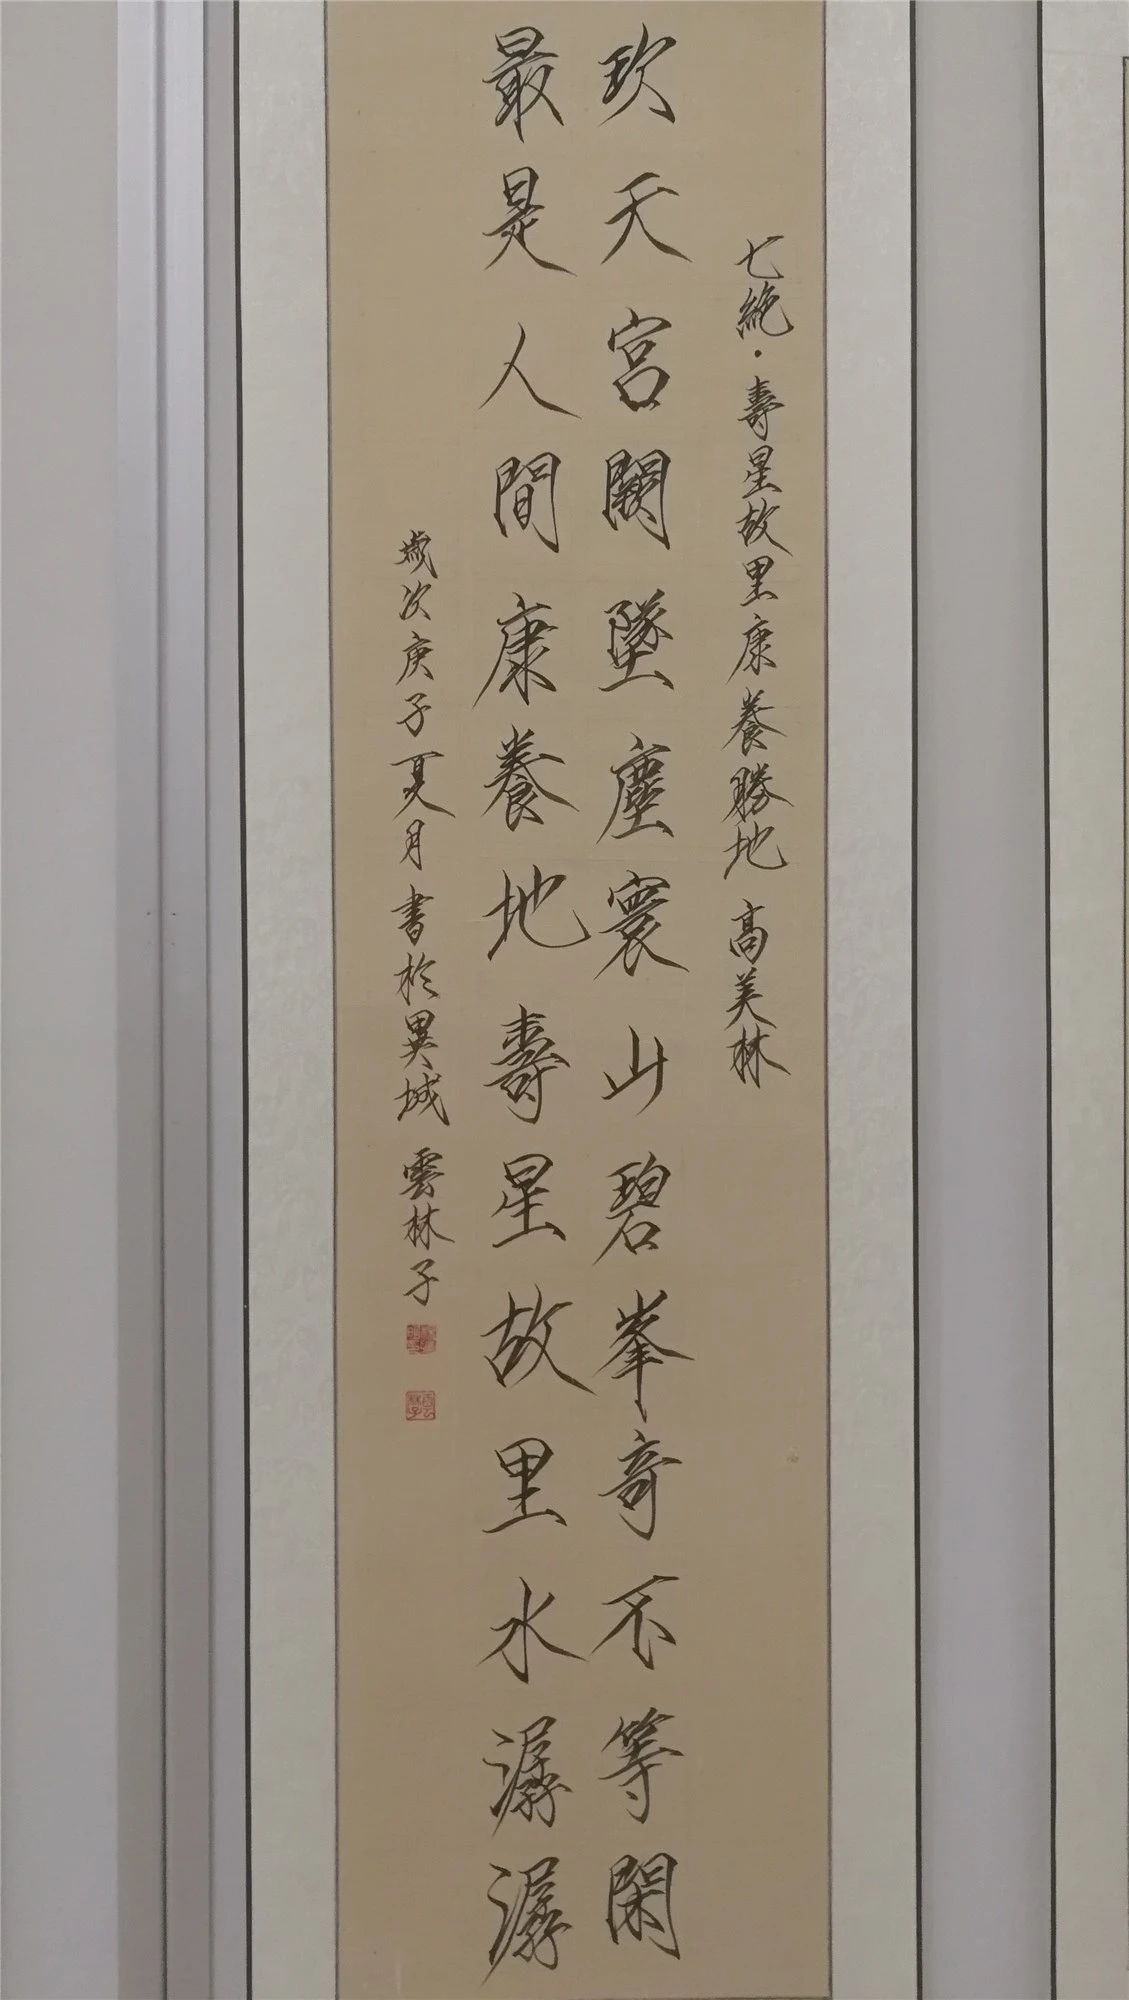 七絶·壽星故里康養勝地 高美林
玖天宮闕墜塵寰山碧峯奇不等閑
最是人間康養地壽星故里水潺潺
歲次庚子夏月書於異城 雲林子